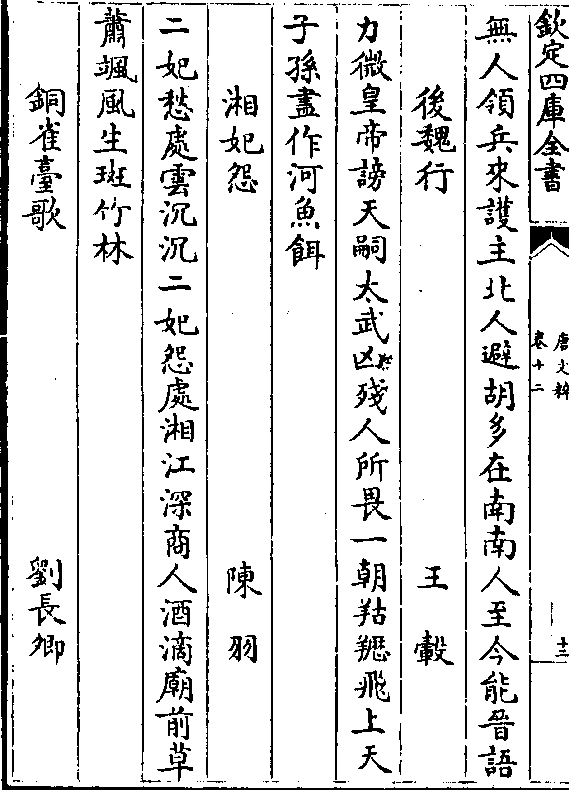 欽定四庫全書
唐文粹
卷十二
十三
無人領兵來護主北人避胡多在南南人至今能晉語
後魏行 王轂
力微皇帝謗天嗣太武凶殘人所畏一朝羖䍽飛上天
子孫盡作河魚餌
湘妃怨 陳羽
二妃愁處雲沉沉二妃怨處湘江深商人酒滴廟前草
蕭颯風生斑竹林
銅雀臺歌 劉長卿